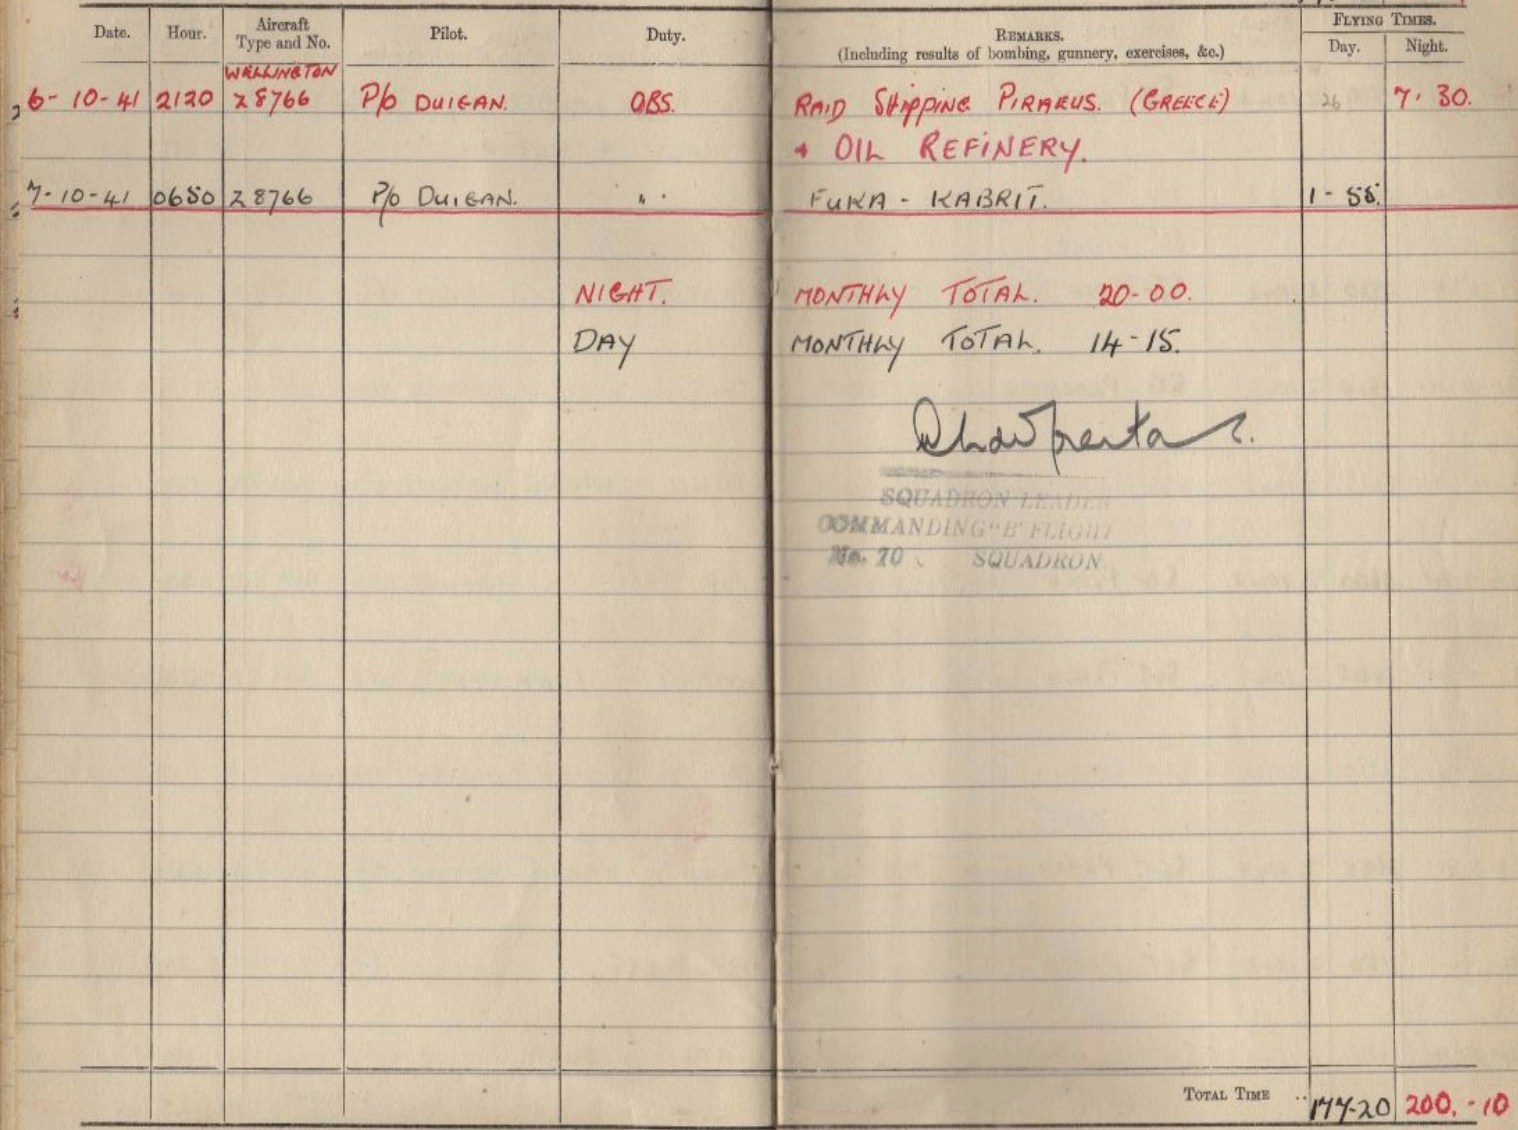 Date. Hour. Aircraft Type and No. Pilot. Duty. REMARKS. (Including results of bombing, gunnery, exercises, &c.) FLYING TIMES. Day. Night.
WELLINGTON
6-10-41 2120 Z8766 P/O DUIGAN. OBS. RAID SHIPPING PIRAEUS. (GREECE) 26 7.30.
+ OIL REFINERY.
7-10-41 0650 Z8766 P/O DUIGAN. ". FUKA - KABRIT. 1-55.
NIGHT. MONTHLY TOTAL. 20-00.
DAY MONTHLY TOTAL. 14-15.
SQUADRON LEADER
COMMANDING "B" FLIGHT
No. 70 SQUADRON
TOTAL TIME .. 177-20 200.-10